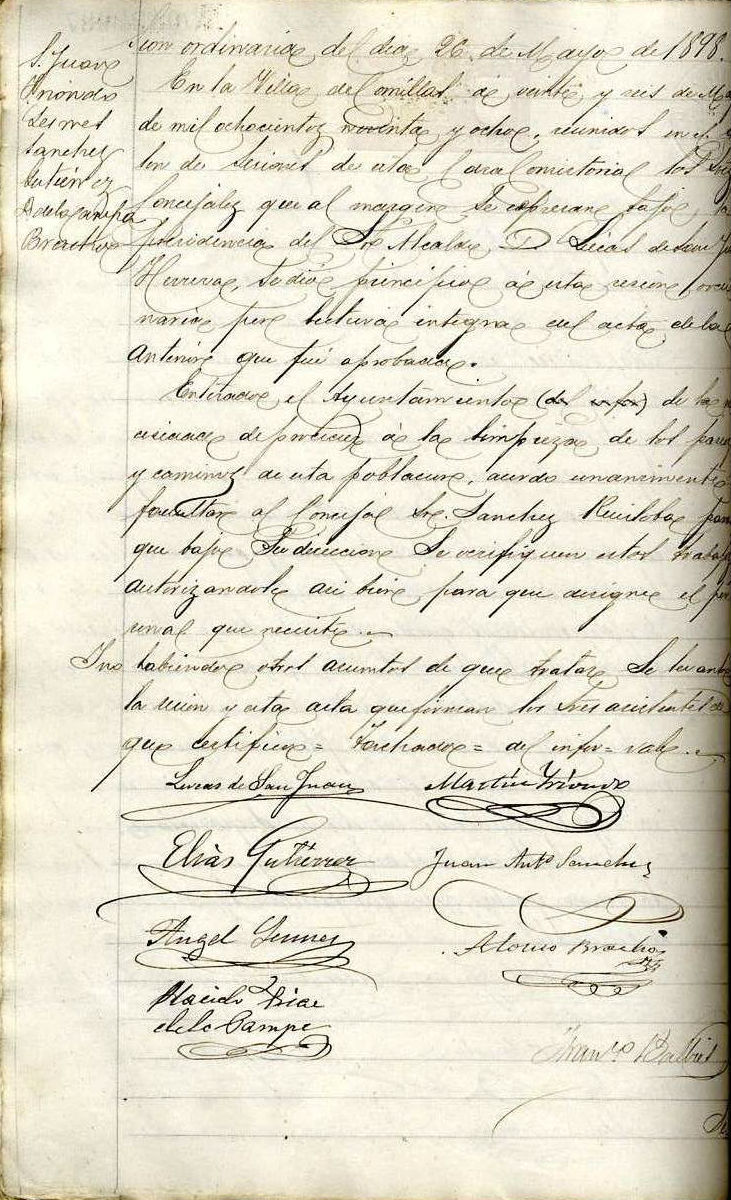 S. Juan
Yriondo
Lesmes
Sanchez
Gutiérrez
D de la Campa
Bracho
sion ordinaria del dia 26 de Mayo de 1898.
En la Villa de Comillas á veinte y seis de Ma
de mil ochocientos noventa y ocho, reunidos en el
lon de sesiones de esta Casa Consistorial los Sres
Concejales que al margen se espresan bajo la
presidencia del Sr Alcalde, D Lucas de San Juan
Herrera, se dió principio á esta sesion ordi
naria por lectura integra del acta de la
anterior que fué aprobada.
Enterado el Ayuntamiento (del infor) de la ne
cesidad de proceder á la limpieza de los paseos
y caminos de esta poblacion, acordó unanimente
facultar al Concejal Sr. Sanchez Ruiloba para
que bajo su direccion se verifiquen estos trabajos
autorizandole asi bien para que designe el per
sonal que necesite.
Y no habiendo otros asuntos de que tratar, se levantó
la sesion y esta acta que firman los Sres asistentes de
que certifico = Tachado = del infor = vale.
Lucas de San Juan Martin Yriondo
Elías Gutiérrez Juan Antº Sanchez
Angel Lesmes Alonso Bracho
Placido Diaz
de la Campa
Franco